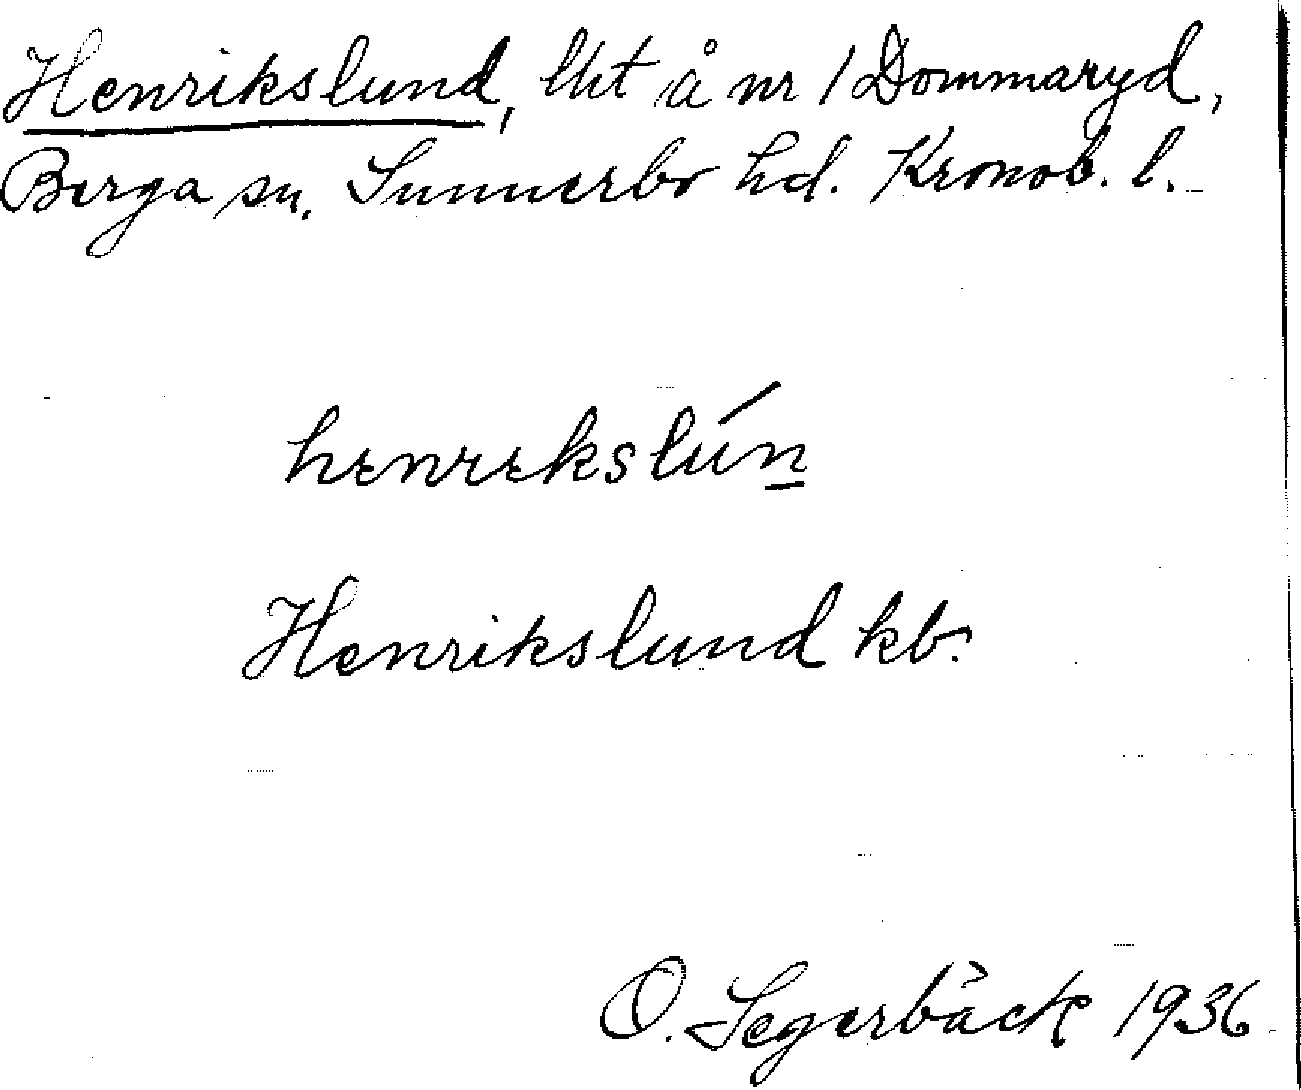 Henrikslund, lht å nr 1 Dommaryd,
Berga sn. Sunnerbo hd. Kronob. l.
henrekslún
Henrikslund kb.
O. Segerbäck 1936